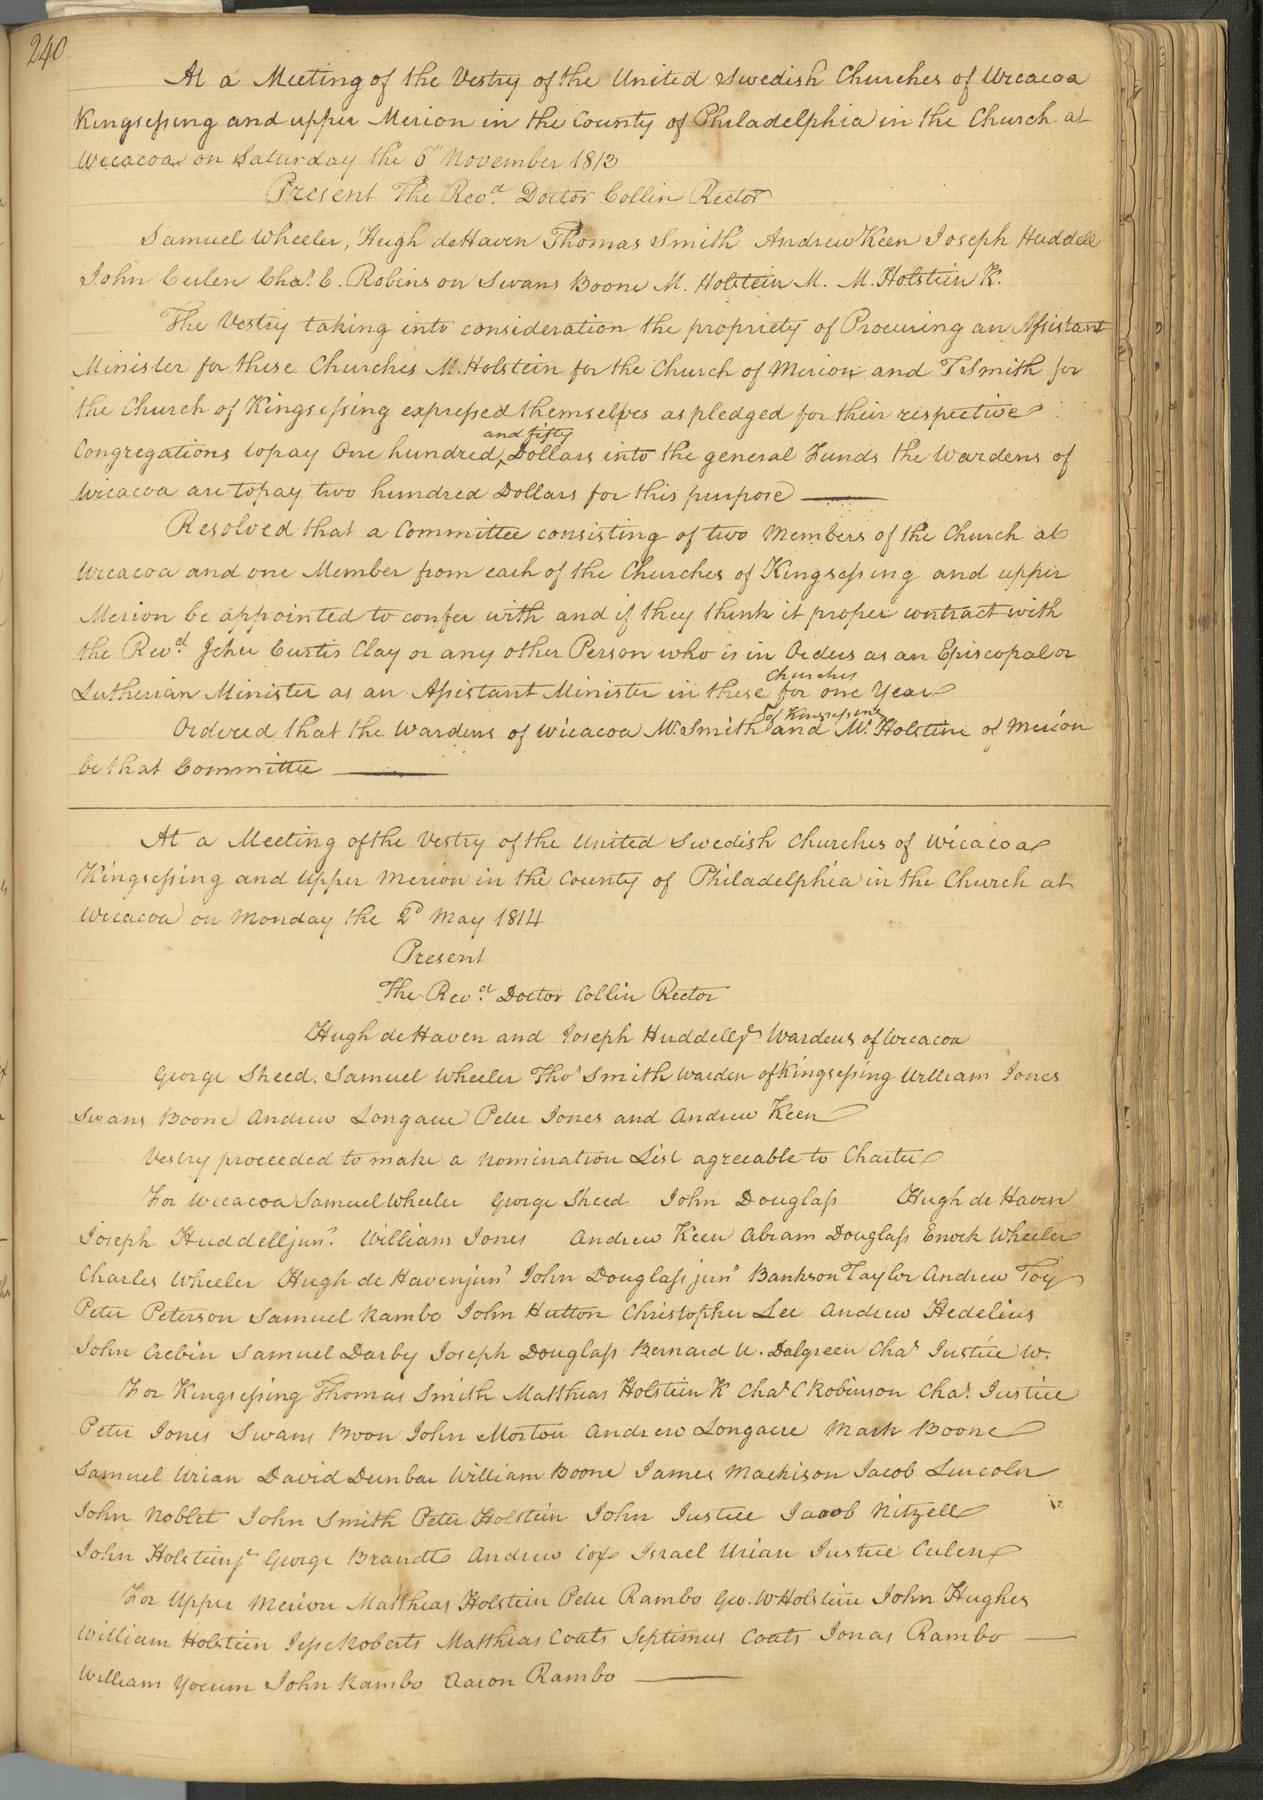 240
At a Meeting of the Vestry of the United Swedish Churches of Wicacoa
Kingsessing and upper Merion in the County of Philadelphia in the Church at
Wicacoa on Saturday the 6th November 1813
Present The Revd. Doctor Collin Rector
Samuel Wheeler, Hugh deHaven Thomas Smith Andrew Keen Joseph Huddell
John Culen Chas. C. Robinson Swans Boone M. Holstein M. M. Holstein K.
The Vestry taking into consideration the propriety of Procuring an Assistant
Minister for these Churches M. Holstein for the Church of Merion and T Smith for
the Church of Kingsessing expressed themselves as pledged for their respective
and fifty
Congregations to pay One hundred ^ Dollars into the general Funds the Wardens of
Wicacoa are to pay two hundred Dollars for this purpose
Resolved that a Committee consisting of two Members of the Church at
Wicacoa and one Member from each of the Churches of Kingsessing and upper
Merion be appointed to confer with and if they think it proper contract with
the Revd. Jehu Curtis Clay or any other Person who is in Orders as an Episcopal or
Churches
Lutherian Minister as an Assistant Minister in these for one Year
of Kingsessing
Ordered that the Wardens of Wicacoa Mr. Smith and Mr. Holstine of Merion
be that Committee
At a Meeting of the Vestry of the United Swedish Churches of Wicacoa
Kingsessing and Upper Merion in the County of Philadelphia in the Church at
Wicacoa on Monday the 2d May 1814
Present
The Revd. Doctor Collin Rector
Hugh deHaven and Joseph Huddell Jr Wardens of Wicacoa
George Sheed. Samuel Wheeler Thos Smith Warden of Kingsessing William Jones
Swans Boone Andrew Longacre Peter Jones and Andrew Keen
Vestry proceeded to make a nomination List agreeable to Charter
For Wicacoa Samuel Wheeler George Sheed John Douglass Hugh de Haven
Joseph Huddell junr. William Jones Andrew Keen Abram Douglass Enock Wheeler
Charles Wheeler Hugh de Haven junr John Douglass junr Bankson Taylor Andrew Toy
Peter Peterson Samuel Rambo John Hutton Christopher Lee Andrew Hedelius
John Crebin Samuel Darby Joseph Douglass Bernard U. Dalgreen Chas Justice W.
For Kingsessing Thomas Smith Matthias Holstein K Chas C Robinson Chas. Justice
Peter Jones Swans Boon John Morton Andrew Longacre Mark Boone
Samuel Urian David Dunbar William Boone James Mackison Jacob Lincoln
John Noblet John Smith Peter Holstein John Justice Jacob Nitzell
John Holstein Jr George Brandt Andrew Cox Israel Urian Justice Culen
For Upper Merion Matthias Holstein Peter Rambo Geo. W Holstine John Hughes
William Holstein Jesse Roberts Matthias Coats Septimus Coats Jonas Rambo
William Yocum John Rambo Aaron Rambo